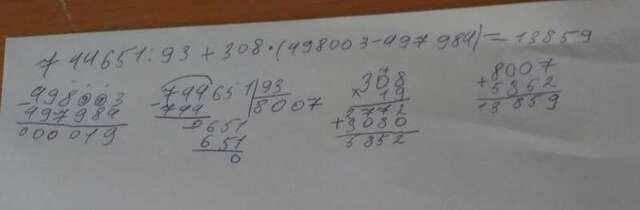 744651:93+308·(498003-497984)=13859
-498003
497984
000019
-744651|93
744 8007
-0651
651
0
308
×19
2772
+3080
5852
8007
+5852
13859